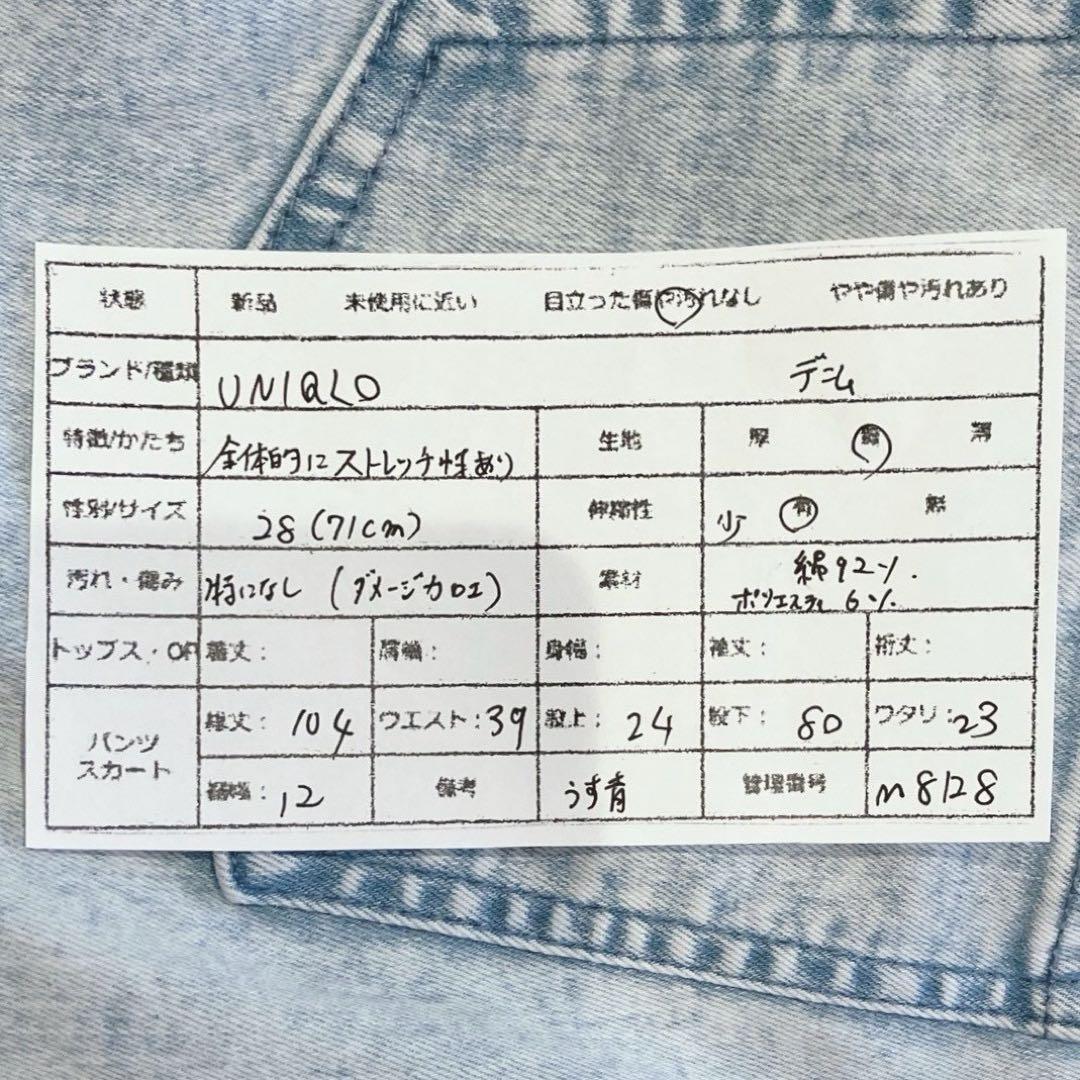 状態 新品 未使用に近い 目立った傷や汚れなし やや傷や汚れあり
ブランド/種類 UNIQLO デニム
特徴/かたち 全体的にストレッチ性あり 生地 厚 普 薄
性別/サイズ 28(71cm) 伸縮性 少 有 無
汚れ・傷み 特になし (ダメージカロエ) 素材 綿92%.
ポリエステル 6%.
トップス・OP 着丈: 肩幅: 身幅: 袖丈: 裄丈:
パンツ 総丈: 104 ウエスト: 39 股上: 24 股下: 80 ワタリ: 23
スカート 裾幅: 12 備考 うす青 管理番号 m8128